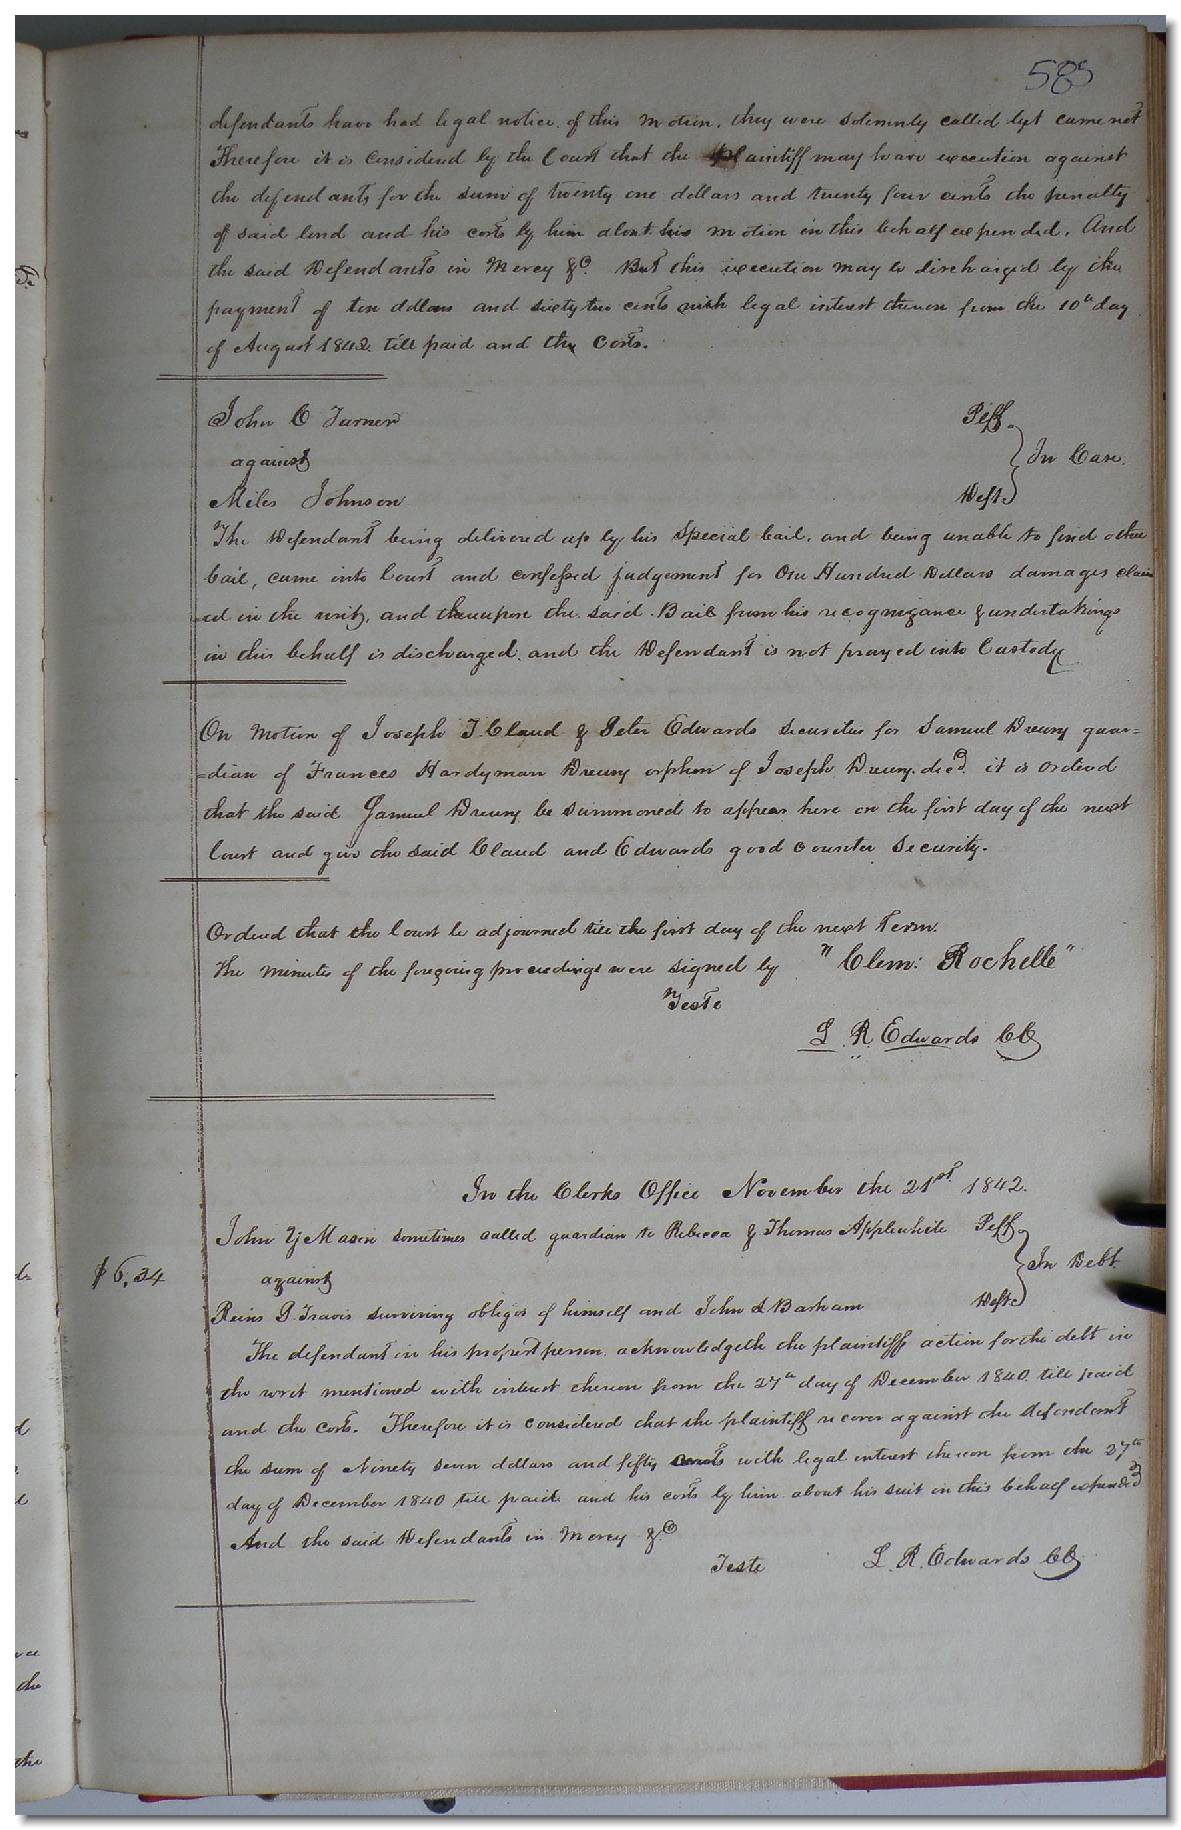 585
defendants have had legal notice of this motion, they were solemnly called but came not
Therefore it is considered by the Court that the plaintiff may have execution against
the defendants for the sum of twenty one dollars and twenty four cents the penalty
of said bond and his costs by him about his motion in this behalf expended. And
the said Defendants in Mercy &c. But this execution may be discharged by the
payment of ten dollars and sixty two cents with legal interest thereon from the 10th day
of August 1842 till paid and the Costs.
John C Turner Plff.
against In Case.
Miles Johnson Deft.
The Defendant being delivered up by his Special bail, and being unable to find other
bail, came into Court and confessed judgement for One Hundred Dollars damages claim
=ed in the writ, and thereupon the said Bail from his recognizance & undertakings
in this behalf is discharged, and the Defendant is not prayed into Custody
On Motion of Joseph T. Claud & Peter Edwards securities for Samuel Drewry guar=
=dian of Frances Hardyman Drewry orphan of Joseph Drewry decd. it is ordered
that the said Samuel Drewry be summoned to appear here on the first day of the next
Court and give the said Claud and Edwards good counter Security.
Ordered that the Court be adjourned till the first day of the next Term.
The minutes of the foregoing proceedings were signed by "Clem: Rochelle"
Teste
L. R. Edwards CC
In the Clerks Office November the 21st 1842.
John Y Mason sometimes called guardian to Rebecca & Thomas Applewhite Plff.
$6,34 against In Debt
Reins D. Travis surviving obligor of himself and John L Barham Deft.
The defendant in his proper person acknowledgeth the plaintiffs action for the debt in
the writ mentioned with interest thereon from the 27th day of December 1840 till paid
and the costs. Therefore it is considered that the plaintiff recover against the defendant
the sum of Ninety seven dollars and fifty cents with legal interest thereon from the 27th
day of December 1840 till paid and his costs by him about his suit in this behalf expended
And the said Defendants in Mercy &c
Teste L. R. Edwards CC